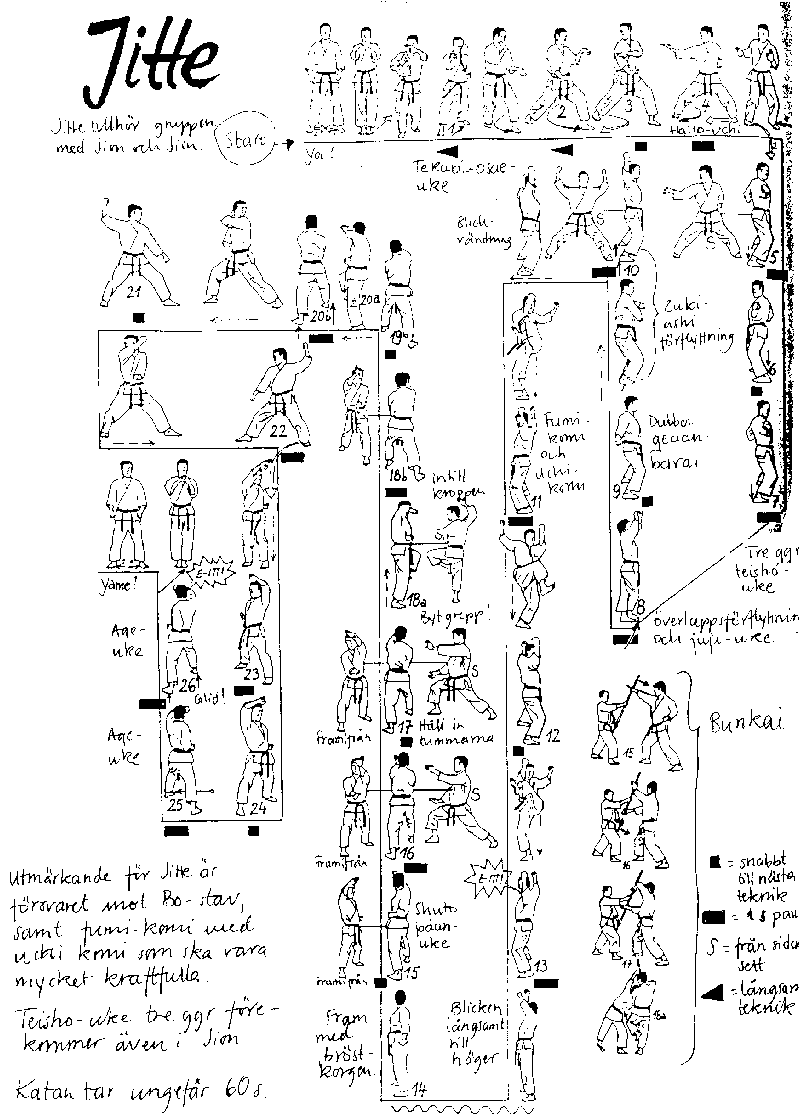 Jitte
Jitte tillhör gruppen
med Jion och Jiin.
Start
Ya!
1
2
3
4
Haito-uchi
Tekubi-osae-
uke
Blick-
vändning
S
10
S
5
21
20b
20a
19b
Zuki-
ashi
förflyttning
6
22
18b
intill
kroppen
Fumi-
komi
och
Uchi-
komi
11
9
Dubbel
gedan-
barai
7
Yame!
E-IT!
18a
Byt grepp!
8
Tre ggr
teisho-
uke
Överloppsförflyttning
och juji-uke.
Age-
uke
26
23
Glid!
Framifrån
17
S
Håll in
tummarna
12
15
Bunkai
Age-
uke
25
24
Framifrån
16
S
16
= snabbt
till nästa
teknik
= 1 s pau
S = från sidan
sett
= långsam
teknik
Utmärkande för Jitte är
försvaret mot Bo-stav,
samt fumi-komi med
uchi komi som ska vara
mycket kraftfulla.
E-IT!
Shuto
Framifrån
15
13
17
Teisho-uke tre ggr före-
kommer även i Jion
Fram
med
bröst-
korgen
14
Blicken
långsamt
till
höger
18a
Katan tar ungefär 60 s.